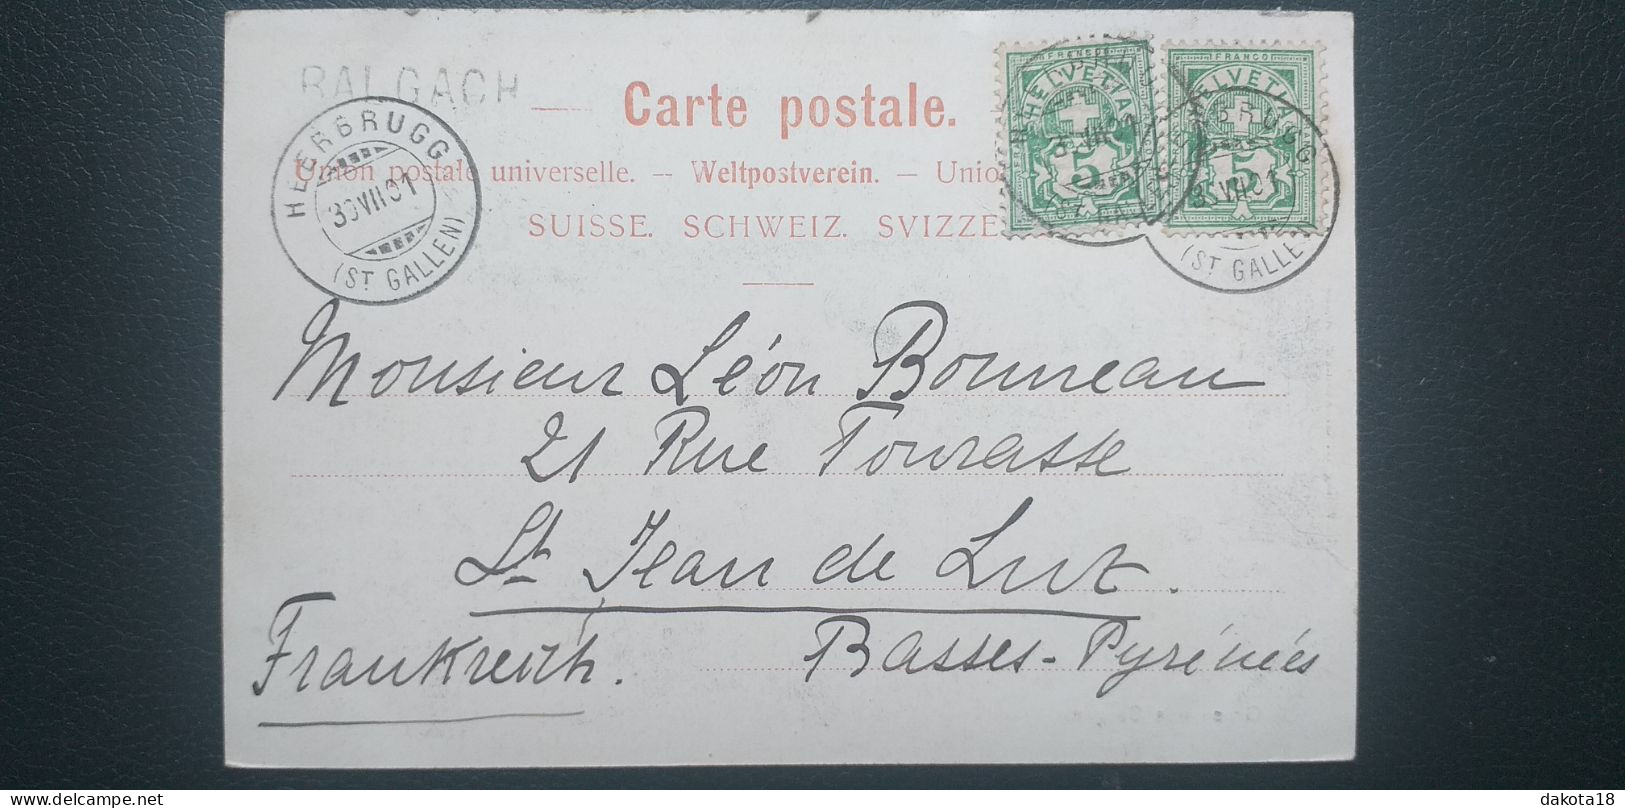 BALGACH
Carte postale.
Union postale universelle. — Weltpostverein. — Unio
SUISSE. SCHWEIZ. SVIZZE
HEERBRUGG
30 VII 01
(ST GALLEN)
FRANCO
HELVETIA
5
FRANCO
HELVETIA
5
30 VII 01
(ST GALLEN)
Monsieur Léon Bonneau
21 Rue Tourasse
St Jean de Luz.
Basses-Pyrénées
Frankreich.
delcampe.net
dakota18